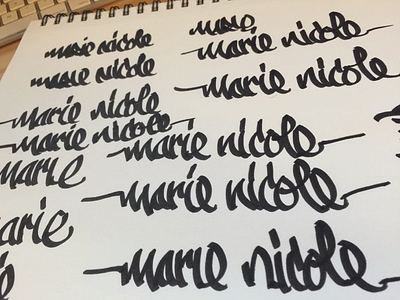 marie nicole
marie nicole
marie nicole
marie nicole
marie
arie
marie nicole
marie nicole
marie nicole
marie nicole
marie nicole